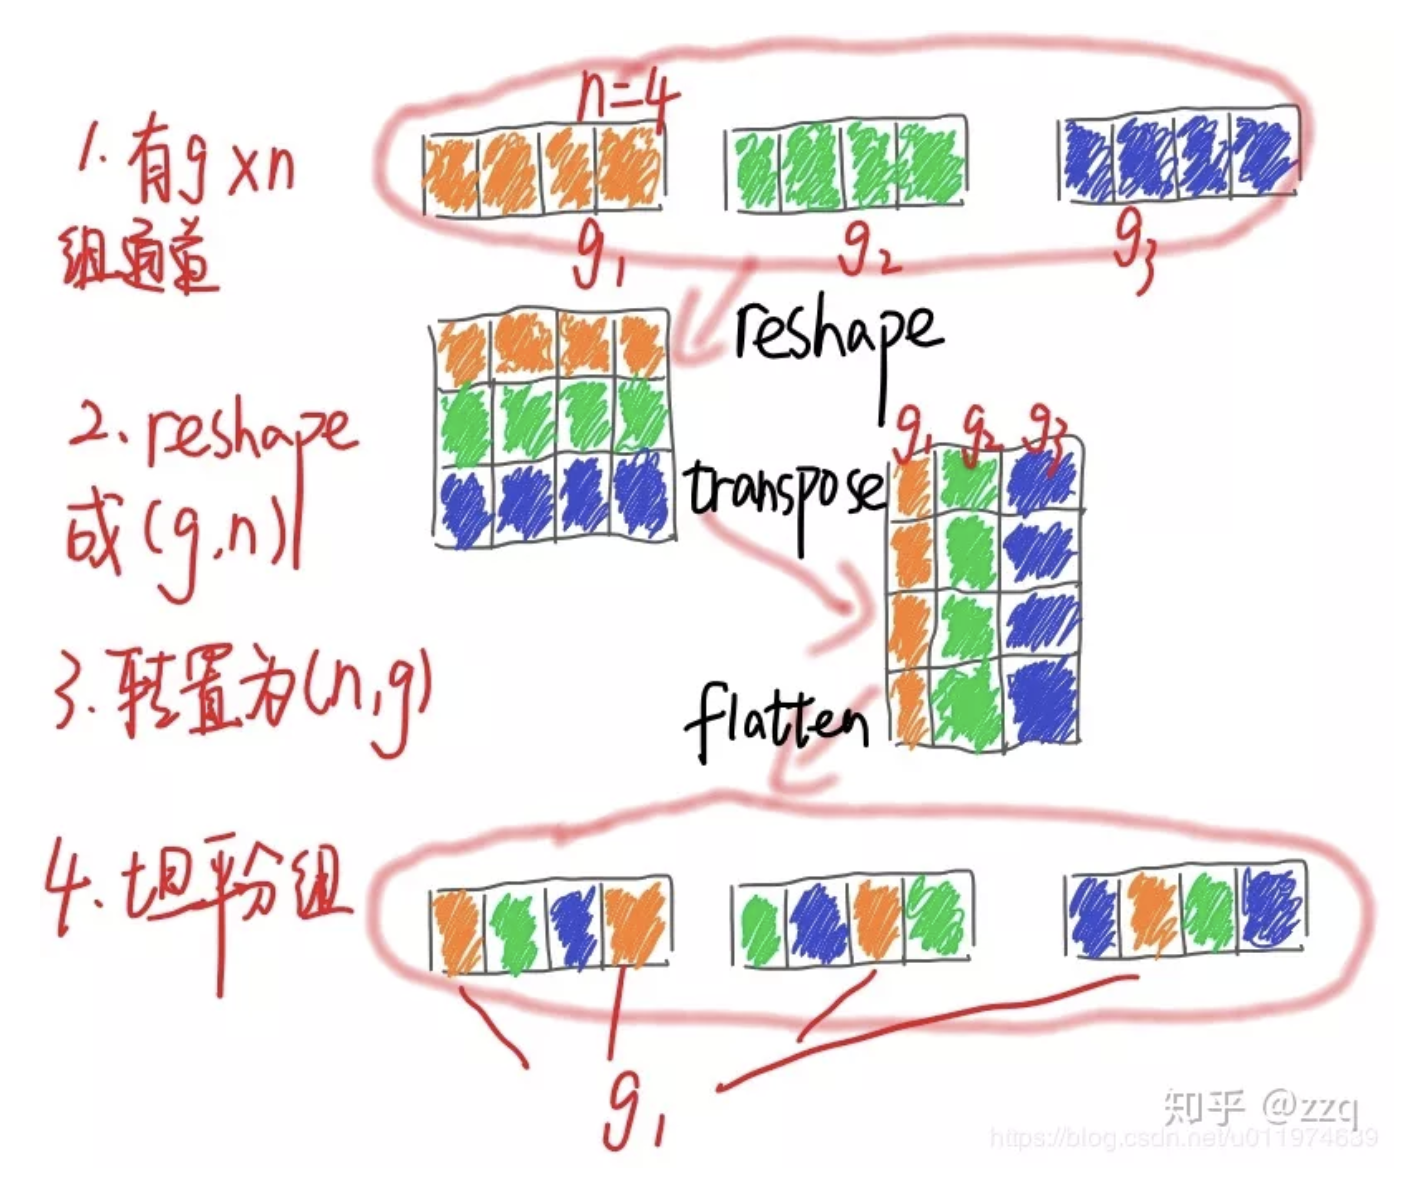 n=4
1.有g×n
组通道
g1
g2
g3
reshape
2.reshape
成(g,n)
g1 g2 g3
transpose
3.转置为(n,g)
flatten
4.坦平分组
g1
知乎 @zzq
https://blog.csdn.net/u011974639